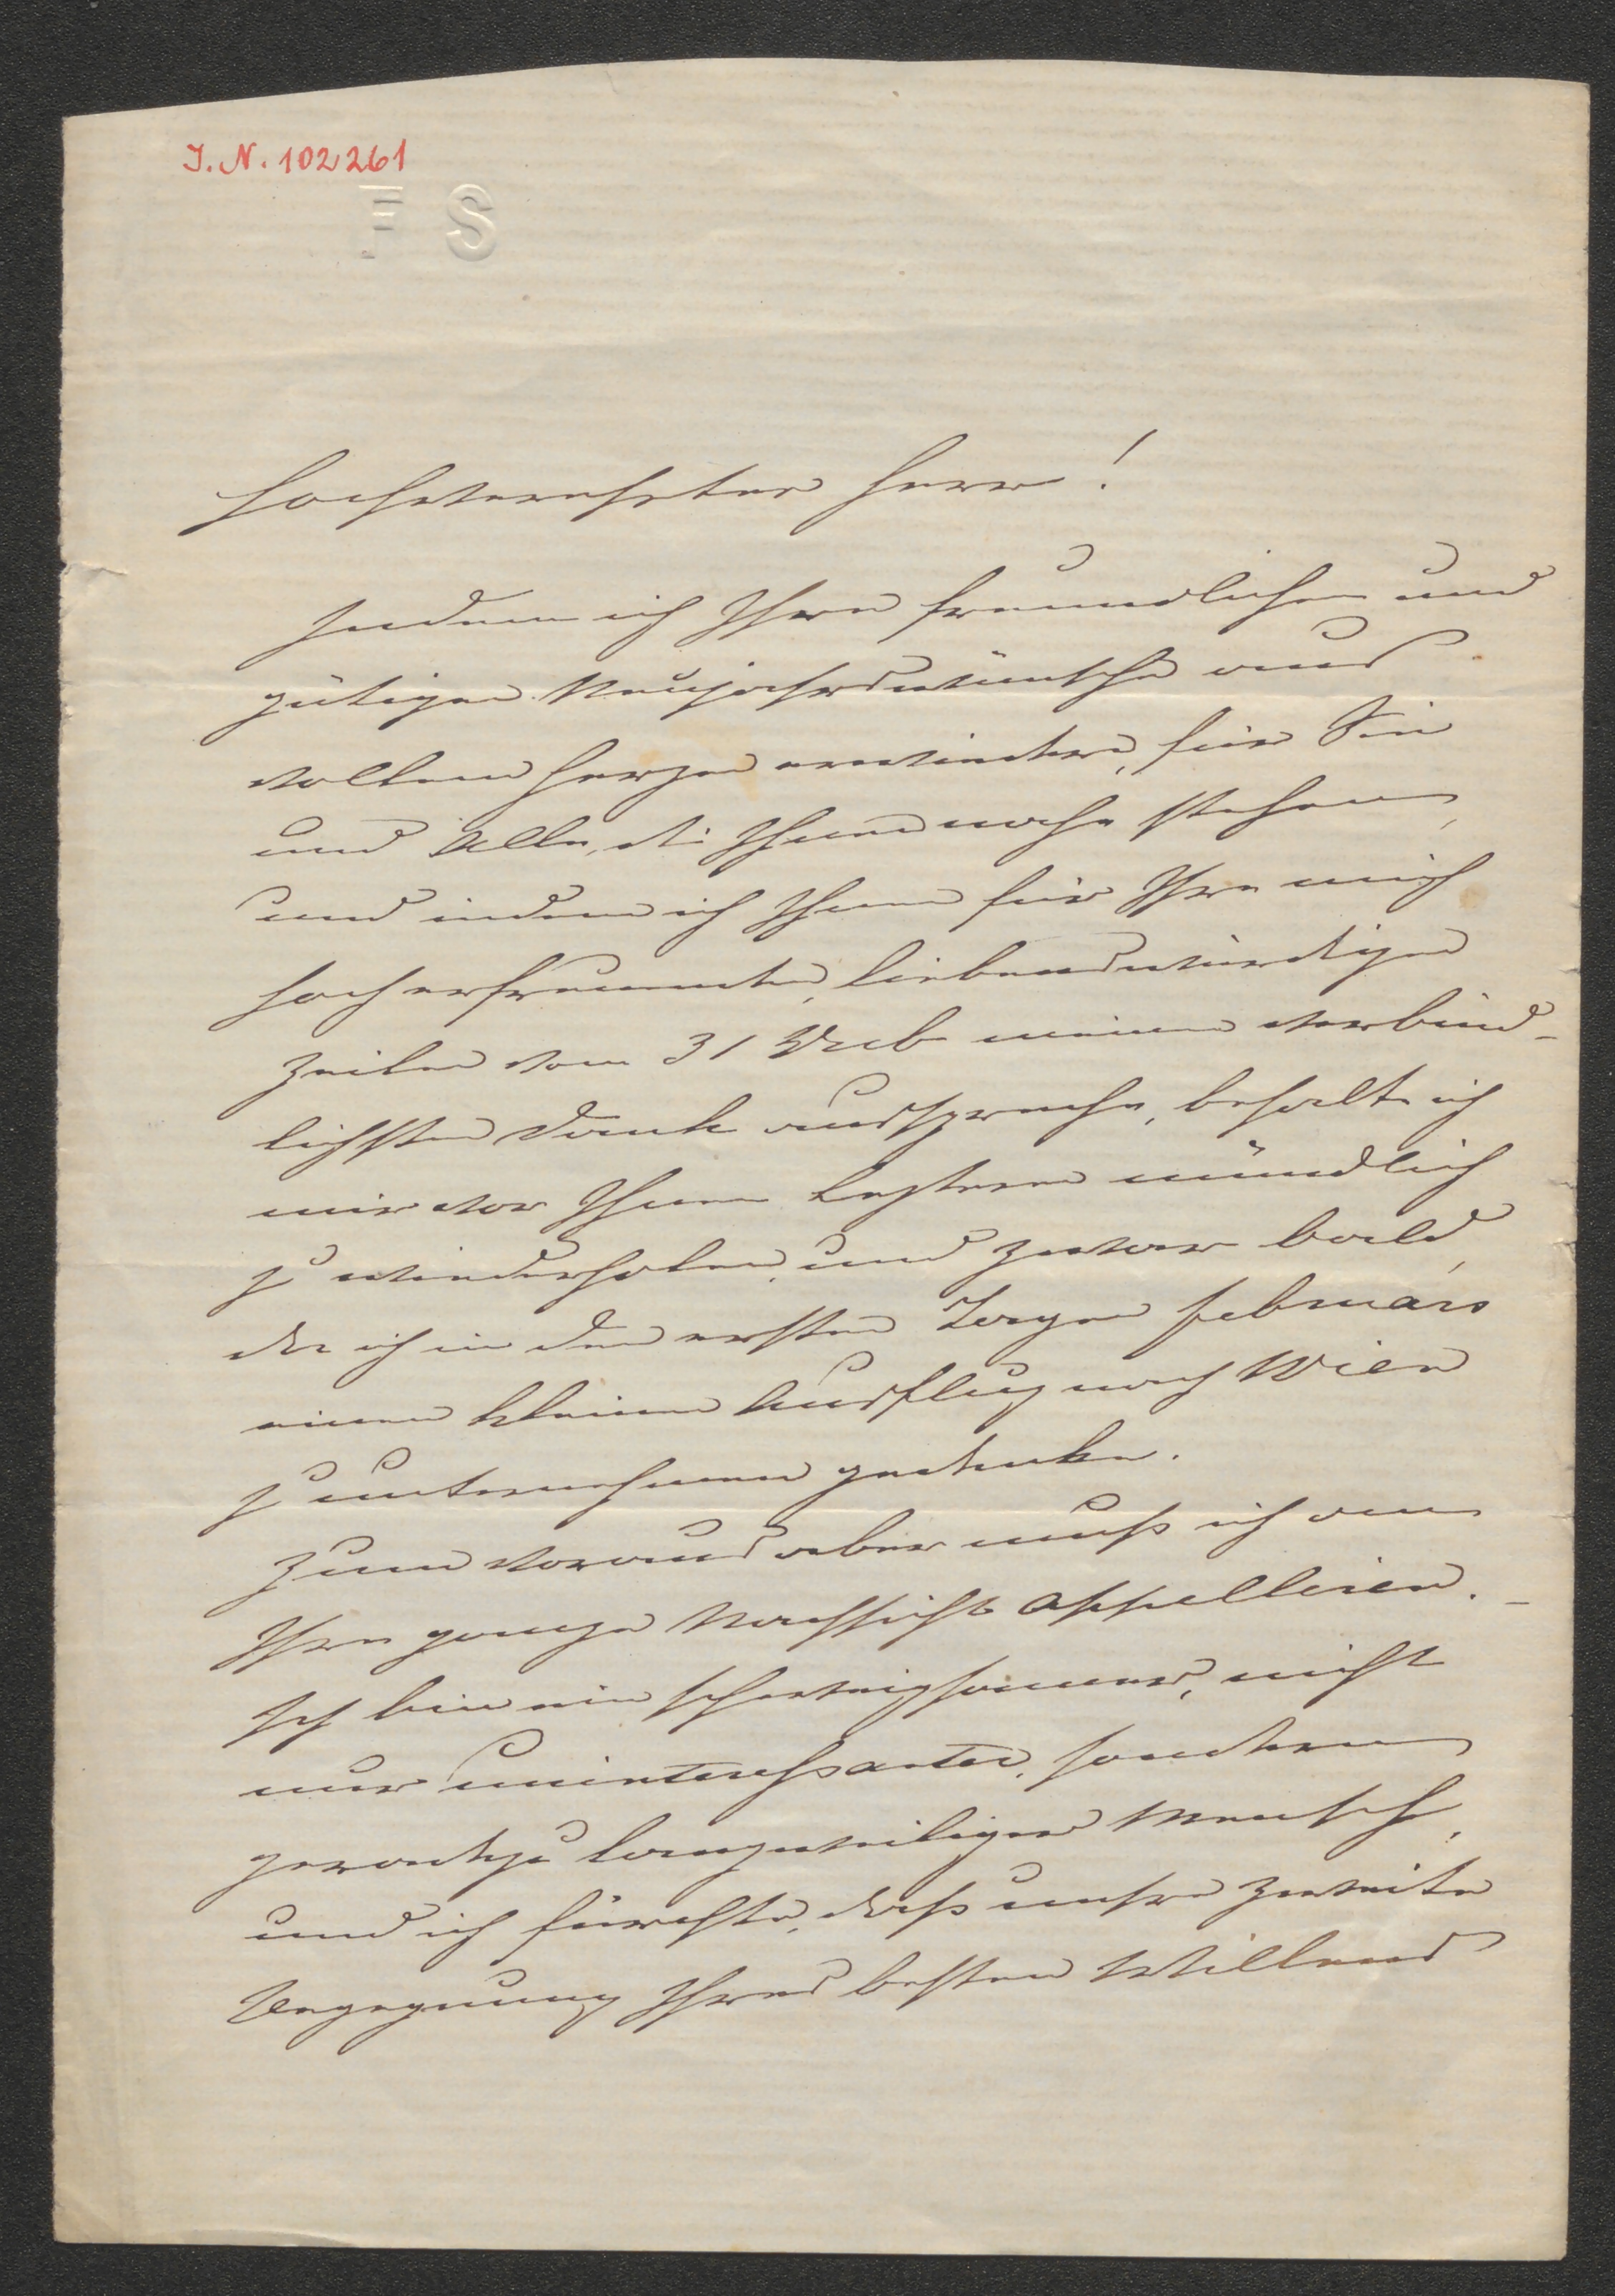 I. N. 102261
F S
Hochverehrter Herr!
Indem ich Ihre freundlichen und
gütigen Neujahrswünsche aus
vollem Herzen erwiedere, für Sie
und Alle, die Ihnen nahe stehen,
und indem ich Ihnen für Ihre mich
hocherfreuenden, liebenswürdigen
Zeilen vom 31 meinen verbind-
lichsten Dank ausspreche, behalte ich
mir vor Ihnen Letzteren mündlich
zu wiederholen, und zwar bald,
da ich in den ersten Tagen Februars
einen kleinen Ausflug nach Wien
zu unternehmen gedenke.
Zum voraus aber muß ich an
Ihre ganze Nachsicht appelliren. –
Ich bin ein schweigsamer, nicht
nur uninteressanter, sondern
geradezu langweiliger Mensch,
und ich fürchte, daß unsre zweite
Begegnung Ihres besten Willens